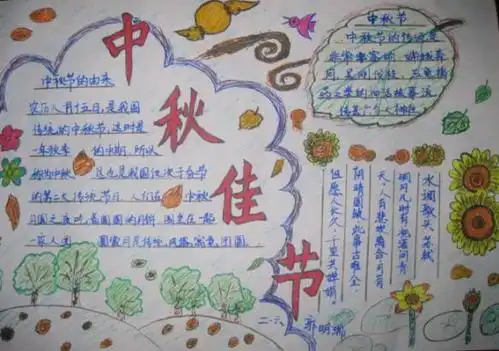 中秋佳节
中秋节的由来
农历八月十五日,是我国
传统的中秋节,这时是
一年秋季 的中期,所以
称为中秋 这也是我国仅次于春节
的第二大传统节日,人们在 中秋
月圆之夜时,
一家人团 圆
中秋节
中秋节的传说是
非常丰富的
月,吴刚伐桂,玉兔捣
药之类的神话故事流
传甚广
水调歌头 苏轼
明月几时有,把酒问青
天。人有悲欢离合,月有
阴晴圆缺,此事古难全。
但愿人长久,千里共婵娟。
二.六